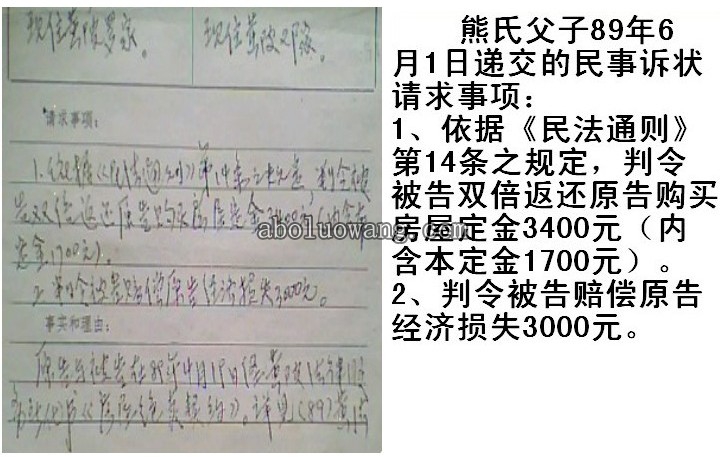 现住黄陂罗家。
现住黄陂邓家。
请求事项:
1.依据《民法通则》第14条之规定,判令被
告双倍返还原告购买房屋定金3400元(内含本
定金1700元)。
2.判令被告赔偿原告经济损失3000元。
事实和理由:
原告与被告在89年4月19日经黄陂
熊氏父子89年6
月1日递交的民事诉状
请求事项:
1、依据《民法通则》
第14条之规定,判令
被告双倍返还原告购买
房屋定金3400元(内
含本定金1700元)。
2、判令被告赔偿原告
经济损失3000元。
aboluowang.com